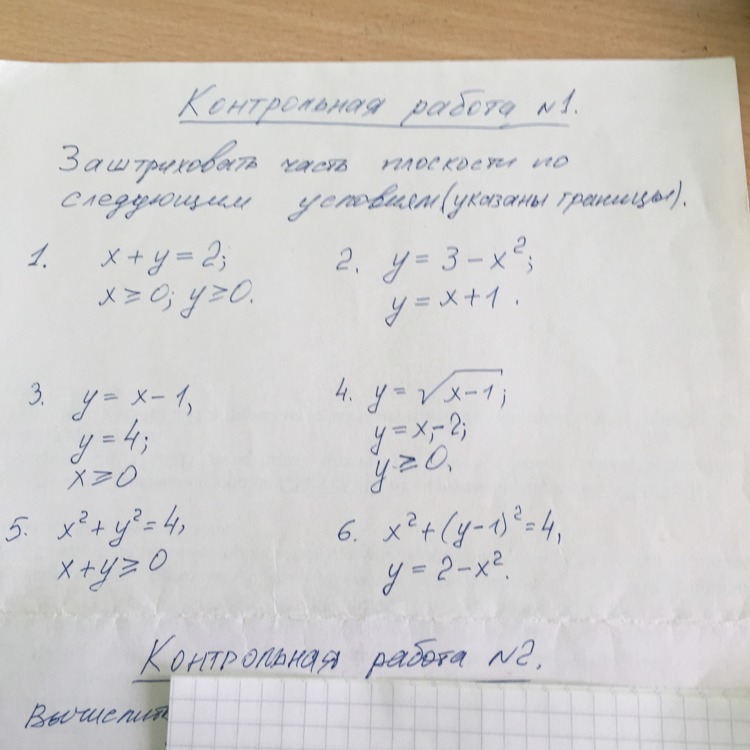 Контрольная работа №1.
Заштриховать часть плоскости по
следующим условиям (указаны границы).
1. x + y = 2;
x ≥ 0; y ≥ 0.
2. y = 3 - x²;
y = x + 1.
3. y = x - 1,
y = 4;
x ≥ 0
4. y = √(x-1);
y = x - 2;
y ≥ 0.
5. x² + y² = 4,
x + y ≥ 0
6. x² + (y-1)² = 4,
y = 2 - x².
Контрольная работа №2.
Вычислить